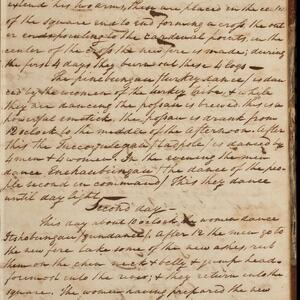 extend his hooarms, these are placed in the center
of the square end to end forming a cross, the out
er ends pointing to the cardinal points, in the
center of the cross the new fire is made; during
the first 4 days they burn out these 4 logs —
The pinebungau (turkey dance) is dan
ced by the women of the turkey tribe, & while
they are dancing the possau is brewed this is a
powerful emetick. The possau is drank from
12 oclock to the middle of the afternoon. After
this the Toccoyulegau (tadpole) is danced by
4 men & 4 women. In the evening the men
dance Enehaubungau, (the dance of the peo
ple second in command) This they dance
until day light.
Second day —
This day about 10 oclock, the women dance
Itshobungau, (gun dance). After 12 the men go to
the new fire take some of the new ashes, rub
them on the chin neck & belly & jump head
foremost into the river, & they return into the
square. The women having prepared the new